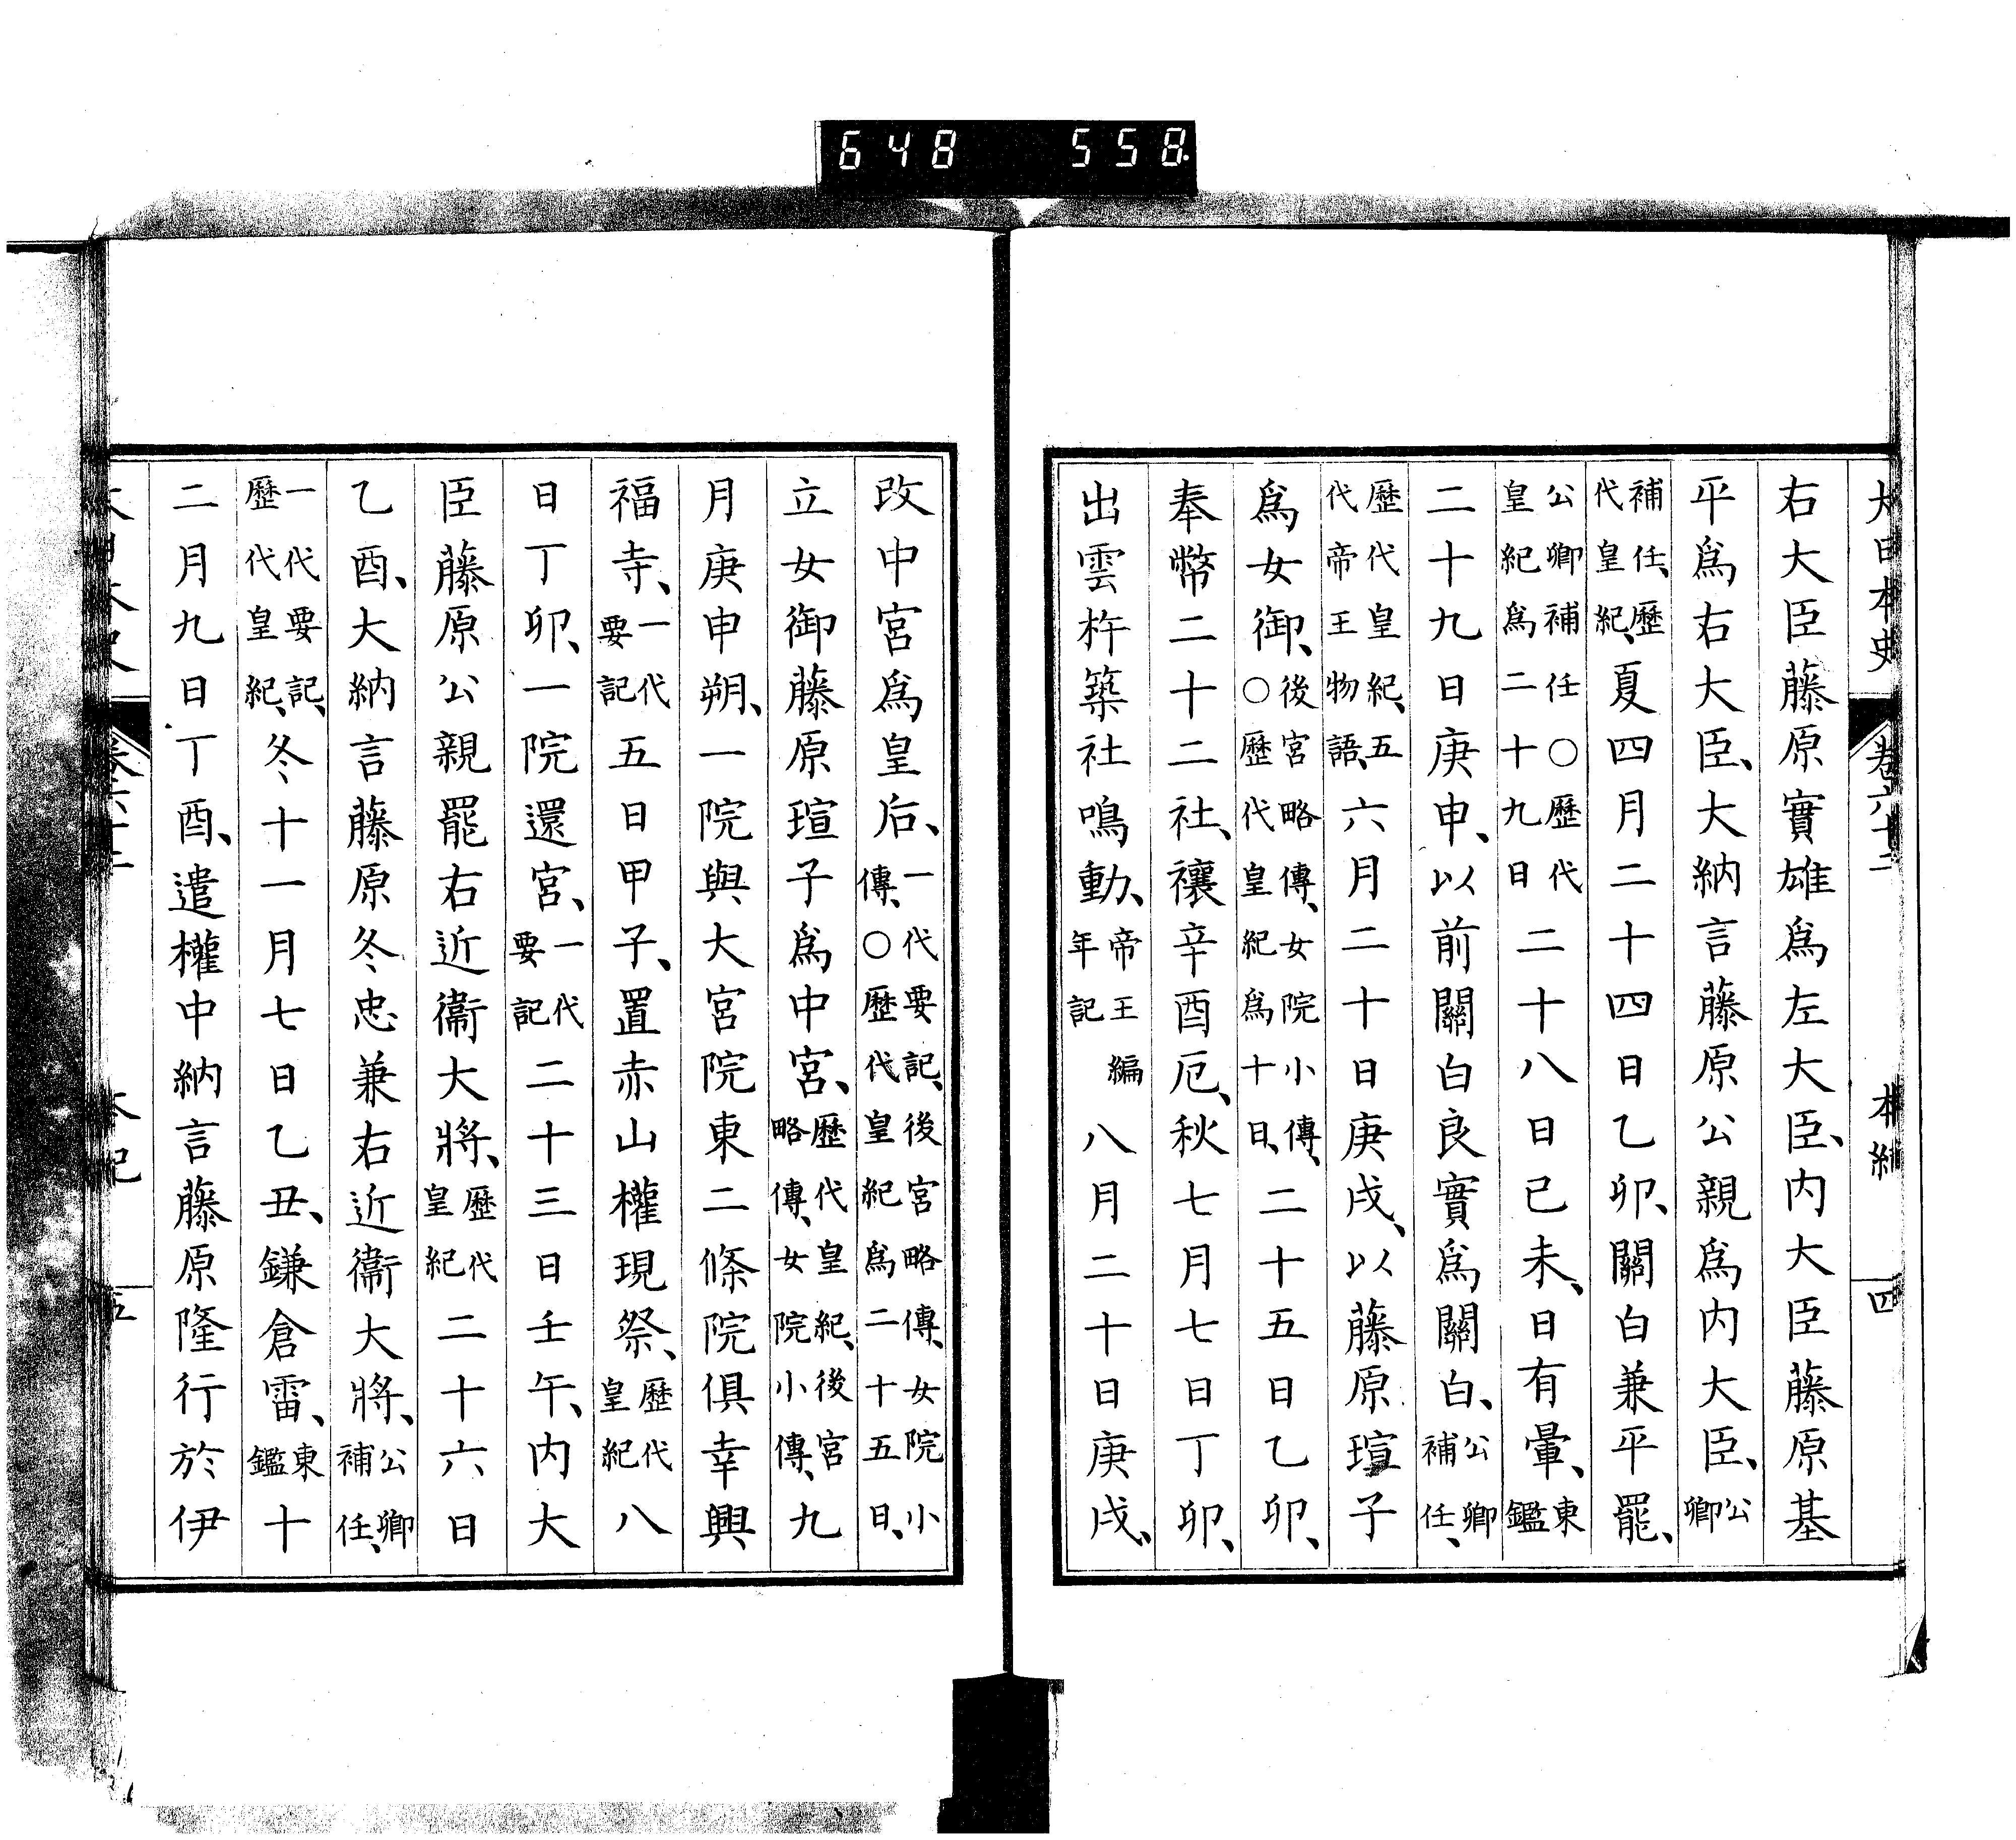 648 558
大日本史 卷六十二 本紀 四
右大臣藤原實雄爲左大臣、内大臣藤原基
平爲右大臣、大納言藤原公親爲内大臣、公卿
補任、歷代皇紀、夏四月二十四日乙卯、關白兼平罷、
公卿補任○歷代皇紀爲二十九日二十八日己未、日有暈、東鑑
二十九日庚申、以前關白良實爲關白、公卿補任、
歷代皇紀、五代帝王物語、六月二十日庚戌、以藤原瑄子
爲女御、後宮略傳、女院小傳、○歷代皇紀爲十日、二十五日乙卯、
奉幣二十二社、禳辛酉厄、秋七月七日丁卯、
出雲杵築社鳴動、帝王編年記八月二十日庚戌、
改中宮爲皇后、一代要記、後宮略傳、女院小傳、○歷代皇紀爲二十五日、
立女御藤原瑄子爲中宮、歷代皇紀、後宮略傳、女院小傳、九
月庚申朔、一院與大宮院東二條院俱幸興
福寺、一代要記五日甲子、置赤山權現祭、歷代皇紀八
日丁卯、一院還宮、一代要記二十三日壬午、内大
臣藤原公親罷右近衞大將、歷代皇紀二十六日
乙酉、大納言藤原冬忠兼右近衞大將、公卿補任、
一代要記、歷代皇紀、冬十一月七日乙丑、鎌倉雷、東鑑十
二月九日丁酉、遣權中納言藤原隆行於伊
大日本史 卷六十二 本紀 五